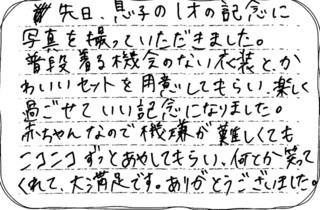 先日、息子の1才の記念に
写真を撮っていただきました。
普段着る機会のない衣装と、か
わいいセットを用意してもらい、楽しく
過ごせていい記念になりました。
赤ちゃんなので機嫌が難しくても
ニコニコずっとあやしてもらい、何とか笑って
くれて、大満足です。ありがとうございました。